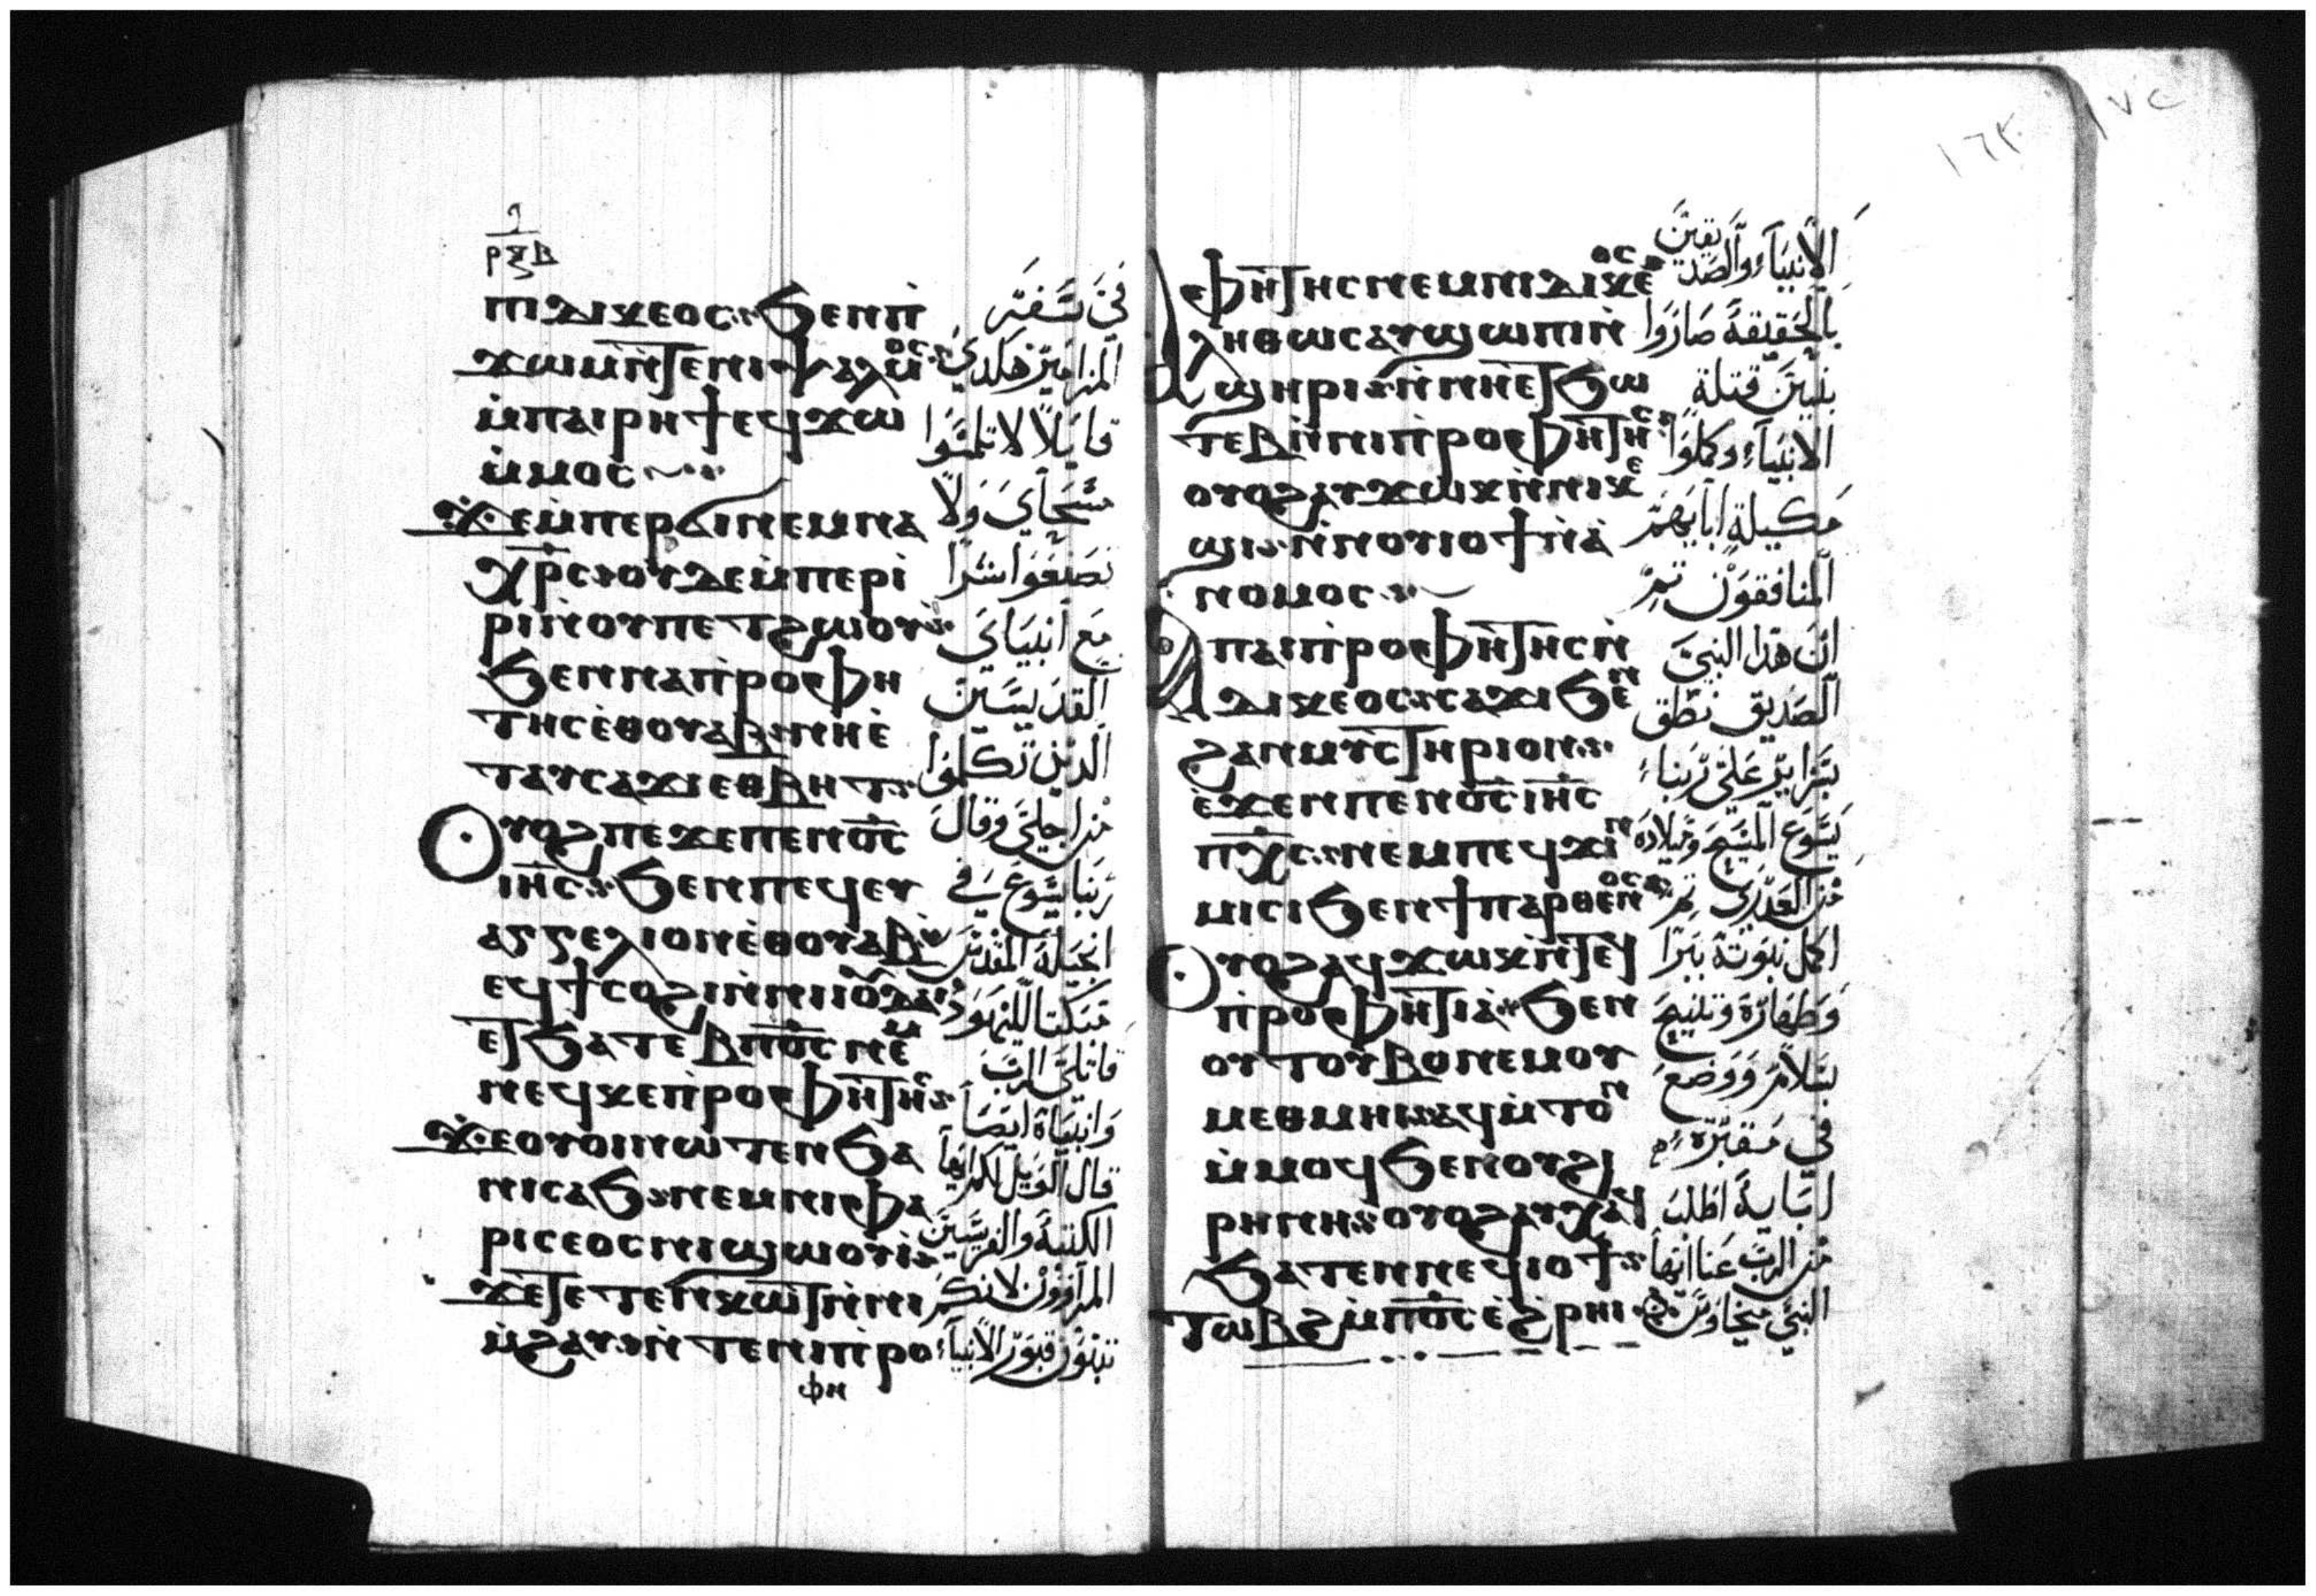 ⲣⲝⲃ
ⲡⲓⲇⲓⲕⲉⲟⲥ ϧⲉⲛ ⲡ̀
ϫⲱⲙ ⲛ̀ⲧⲉ ⲛⲓⲯⲁⲗⲙⲟⲥ
ⲙ̀ⲡⲁⲓⲣⲏϯ ⲉϥϫⲱ
ⲙ̀ⲙⲟⲥ
ϫⲉ ⲙ̀ⲡⲉⲣϭⲓ ⲛⲉⲙ ⲛⲁ
ⲭ̅ⲣ̅ⲥ̅ ⲟⲩⲇⲉ ⲙ̀ⲡⲉⲣⲓ̀
ⲣⲓ ⲛ̀ⲟⲩⲡⲉⲧϩⲱⲟⲩ
ϧⲉⲛ ⲛⲁⲡ̀ⲣⲟⲫⲏ
ⲧⲏⲥ ⲉ̀ⲑⲟⲩⲁⲃ ⲛⲏⲉ̀
ⲧⲁⲩⲥⲁϫⲓ ⲉⲑⲃⲏⲧ
ⲟⲩⲟϩ ⲡⲉϫⲉ ⲡⲉⲛⲟ̅ⲥ̅
ⲓⲏ̅ⲥ̅ ϧⲉⲛ ⲡⲉϥⲉⲩ
ⲁⲅⲅⲉⲗⲓⲟⲛ ⲉ̀ⲑⲟⲩⲁⲃ
ⲉϥϯⲥⲟϩⲓ ⲛ̀ⲛⲓⲓⲟⲩⲇⲁⲓ
ⲉⲧϧⲁⲧⲉⲃ ⲡ̅ⲟ̅ⲥ̅ ⲛⲉⲙ
ⲛⲉϥⲕⲉⲡ̀ⲣⲟⲫⲏⲧⲏⲥ
ϫⲉ ⲟⲩⲟⲓ ⲛⲱⲧⲉⲛ ϧⲁ
ⲛⲓⲥⲁϧ ⲛⲉⲙ ⲛⲓⲫⲁ
ⲣⲓⲥⲉⲟⲥ ⲛⲓϣⲱⲟⲩⲓ̀
ϫⲉ ⲧⲉⲧⲉⲛⲕⲱⲧ ⲛ̀ⲛⲓ
ⲙ̀ϩⲁⲩ ⲛ̀ⲧⲉ ⲛⲓⲡ̀ⲣⲟ
ⲫⲏ
في شفة
المزامير هكدي
قايلاً لا تلمسوا
مسحاي ولا
تصنعوا شراً
مع انبياي
القديسين
الدين تكلموا
من اجلي وقال
ربنا يسوع في
انجيله المقدس
مبكتا لليهود
قاتلي الرب
وانبياه ايضاً
قال الويل لكم ايها
الكتبة والفريسين
المراؤون لانكم
تبنون قبور الانبياء
١٦٢
١٧٢
ⲫⲏⲧⲏⲥ ⲛⲉⲙ ⲛⲓⲇⲓⲕⲉⲟⲥ
ⲁⲗⲏⲑⲱⲥ ⲁⲩϣⲱⲡⲓ ⲛ̀
ϣⲏⲣⲓ ⲛ̀ⲛⲏⲉⲧϧⲱ
ⲧⲉⲃ ⲛ̀ⲛⲓⲡ̀ⲣⲟⲫⲏⲧⲏⲥ
ⲟⲩⲟϩ ⲁⲩϫⲱⲕ ⲛ̀ⲛⲓⲕⲉ
ϣⲓ ⲛ̀ⲛⲟⲩⲓⲟϯ ⲛ̀ⲁ̀
ⲛⲟⲙⲟⲥ
ⲡⲁⲓⲡ̀ⲣⲟⲫⲏⲧⲏⲥ ⲛ̀
ⲇⲓⲕⲉⲟⲥ ⲥⲁϫⲓ ϧⲉⲛ
ϩⲁⲛⲙⲩⲥⲧⲏⲣⲓⲟⲛ
ⲉ̀ϫⲉⲛ ⲡⲉⲛⲟ̅ⲥ̅ ⲓⲏ̅ⲥ̅
ⲡⲭ̅ⲥ̅ ⲛⲉⲙ ⲡⲉϥϫⲓⲛ
ⲙⲓⲥⲓ ϧⲉⲛ ϯⲡⲁⲣⲑⲉⲛⲟⲥ
ⲟⲩⲟϩ ⲁϥϫⲱⲕ ⲛ̀ⲧⲉϥ
ⲡ̀ⲣⲟⲫⲏⲧⲓⲁ̀ ϧⲉⲛ
ⲟⲩⲧⲟⲩⲃⲟ ⲛⲉⲙ ⲟⲩ
ⲙⲉⲑⲙⲏⲓ ⲁϥⲙ̀ⲧⲟⲛ
ⲙ̀ⲙⲟϥ ϧⲉⲛ ⲟⲩϩⲓ
ⲣⲏⲛⲏ ⲟⲩⲟϩ ⲁⲩⲭⲁϥ
ϧⲁⲧⲉⲛ ⲛⲉϥⲓⲟϯ
ⲧⲱⲃϩ ⲙ̀ⲡ̅ⲟ̅ⲥ̅ ⲉ̀ϩ̀ⲣⲏⲓ
الانبياء والصديقين
بالحقيقة صاروا
بنين قتلة
الانبياء وكملوا
مكيلة ابايهم
المنافقون
ان هدا النبي
الصديق نطق
بسراير علي ربنا
يسوع المسيح وميلاده
من العدري
اكمل نبوته ببرا
وطهارة وتنيح
بسلام ووضع
في مقبرة
ابايه اطلب
من الرب عنا ايها
النبي